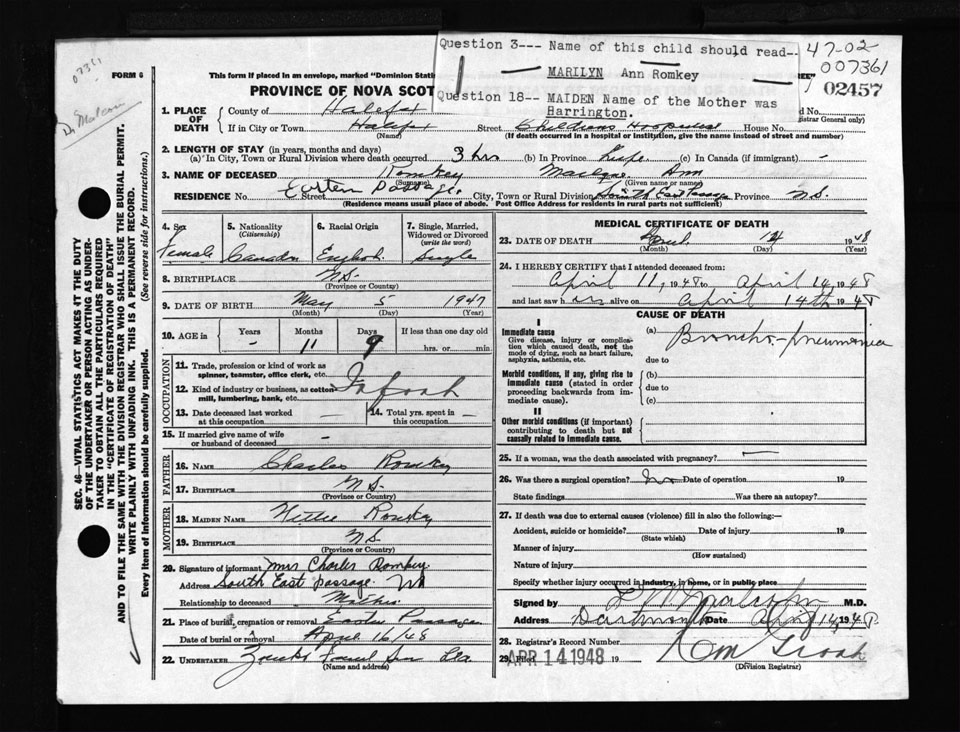 Question 3--- Name of this child should read--
MARILYN Ann Romkey
Question 18--- MAIDEN Name of the Mother was
Harrington.
47-02
007361
02457
07361
Dr Malcolm
FORM 6
This form if placed in an envelope, marked "Dominion Statis
REE"
PROVINCE OF NOVA SCOT
d No.
istrar General only)
1. PLACE OF DEATH
County of Halifax
If in City or Town Halifax Street Childrens Hospital House No.
(Name) (If death occurred in a hospital or institution, give the name instead of street and number)
2. LENGTH OF STAY (in years, months and days)
(a) In City, Town or Rural Division where death occurred 3 hrs (b) In Province Life (c) In Canada (if immigrant) -
3. NAME OF DECEASED Romkey Ann
(Surname) (Given name or names)
RESIDENCE No. Eastern Passage Street City, Town or Rural Division South East Passage Province N.S.
(Residence means usual place of abode. Post Office Address for residents in rural parts not sufficient)
4. Sex
Female
5. Nationality
(Citizenship)
Canadian
6. Racial Origin
English
7. Single, Married, Widowed or Divorced
(write the word)
Single
8. BIRTHPLACE N.S.
(Province or Country)
9. DATE OF BIRTH May 5 1947
(Month) (Day) (Year)
10. AGE in
Years Months Days If less than one day old
- 11 9 hrs. or min
OCCUPATION
11. Trade, profession or kind of work as
spinner, teamster, office clerk, etc.
12. Kind of industry or business, as cotten
mill, lumbering, bank, etc.
13. Date deceased last worked
at this occupation -
14. Total yrs. spent in
this occupation -
15. If married give name of wife
or husband of deceased -
FATHER
16. NAME Charles Romkey
17. BIRTHPLACE N.S.
(Province or Country)
MOTHER
18. MAIDEN NAME Romkey
19. BIRTHPLACE N.S.
(Province or Country)
20. Signature of informant Mrs Charles Romkey
Address South East Passage
Relationship to deceased Mother
21. Place of burial, cremation or removal Passage
Date of burial or removal April 16/48
22. UNDERTAKER Ltd.
(Name and address)
MEDICAL CERTIFICATE OF DEATH
23. DATE OF DEATH April 14 1948
(Month) (Day) (Year)
24. I HEREBY CERTIFY that I attended deceased from:
April 11, 1948 to April 14, 1948
and last saw h alive on April 14th 1948
CAUSE OF DEATH
I
Immediate cause
Give disease, injury or complica-
tion which caused death, not the
mode of dying, such as heart failure,
asphyxia, asthenia, etc.
(a) Broncho-pneumonia
due to
Morbid conditions, if any, giving rise to
immediate cause (stated in order
proceeding backwards from im-
mediate cause).
(b)
due to
(c)
II
Other morbid conditions (if important)
contributing to death but not
causally related to immediate cause.
25. If a woman, was the death associated with pregnancy? -
26. Was there a surgical operation? No Date of operation 19
State findings Was there an autopsy?
27. If death was due to external causes (violence) fill in also the following:-
Accident, suicide or homicide? Date of injury 19
(State which)
Manner of injury
(How sustained)
Nature of injury
Specify whether injury occurred in industry, in home, or in public place
Signed by Malcolm M.D.
Address Dartmouth Date April 14, 1948
28. Registrar's Record Number
29. Filed APR 14 1948 19
(Division Registrar)
SEC. 46—VITAL STATISTICS ACT MAKES IT THE DUTY
OF THE UNDERTAKER OR PERSON ACTING AS UNDER-
TAKER TO OBTAIN ALL THE PARTICULARS REQUIRED
IN THE "CERTIFICATE OF REGISTRATION OF DEATH"
AND TO FILE THE SAME WITH THE DIVISION REGISTRAR WHO SHALL ISSUE THE BURIAL PERMIT.
WRITE PLAINLY WITH UNFADING INK. THIS IS A PERMANENT RECORD.
Every item of Information should be carefully supplied. (See reverse side for instructions.)